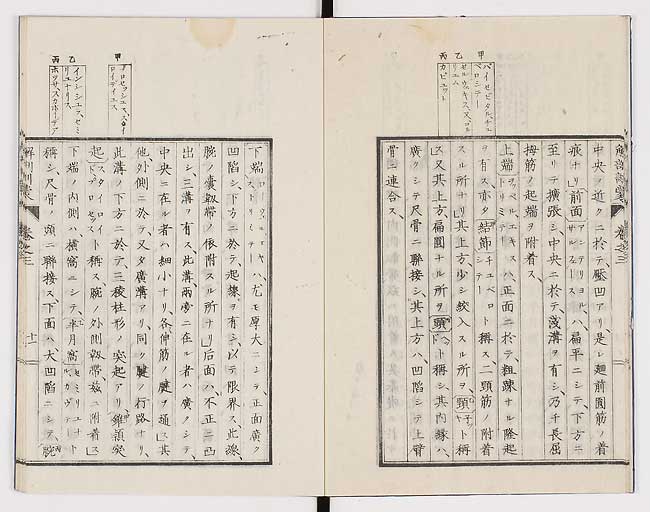 甲
バイセピタルチュ
ベロシテー
乙
セルウ井キス、又コル
リユム
丙
カピユット
解剖訓蒙
卷之三
中央ノ近クニ於テ、壓凹アリ、是レ廻前圓筋ノ着
痕ナリ前面アンテリヨル
サルフェースハ、扁平ニシテ、下方ニ
至リテ擴張シ、中央ニ於テ、淺溝ヲ有シ、乃チ長屈
拇筋ノ起端ヲ附着ス、
上端ヲッペルエキス
トリミテーハ、正面ニ於テ、粗糙ナル隆起
ヲ有ス、亦タ結節チュベロ
シテート稱ス、二頭筋ノ附着
スル所ナリ、其上方、少シ絞入スル所ヲ、頸ト稱
ス、又其上方扁圓ナル所ヲ頭ト稱シ、其内縁ハ、
廣クシテ尺骨ニ聯接シ、其上方ハ、凹陷シテ上臂
骨ニ連合ス、
甲
プロセッシュス、スタイ
ロイデイユス
乙
インシシュユス、セミ
リユナリス
丙
ホッサスカホイデア
下端ローウェルエキ
ストリミテーハ、尤モ厚大ニシテ、正面廣ク
凹陷シ、下方ニ於テ、起線ヲ有シ、以テ限界ス、此線、
腕ノ囊靱帶ノ依附スル所ナリ、后面ハ、不正ニ凸
出シ、三溝ヲ有ス、此溝兩旁ニ在ル者ハ廣ノシテ、
中央ニ在ル者ハ細小ナリ、各伸筋ノ腱ヲ通ス、其
他、外側ニ於テ、又タ廣溝アリ、同ク腱ノ行路ナリ、
此溝ノ下方ニ於テ、三稜柱形ノ突起アリ、錐狀突
起スタイロイト
プロセスト稱ス、腕ノ外側靱帶、茲ニ附着ス、
下端ノ内側ハ、横窩ニシテ、半月窩セミリユナー
ル、カヴテート
稱シ、尺骨ノ頭ニ聯接ス、下面ハ、大凹陷ニシテ、腕
解剖訓蒙
卷之三
十一